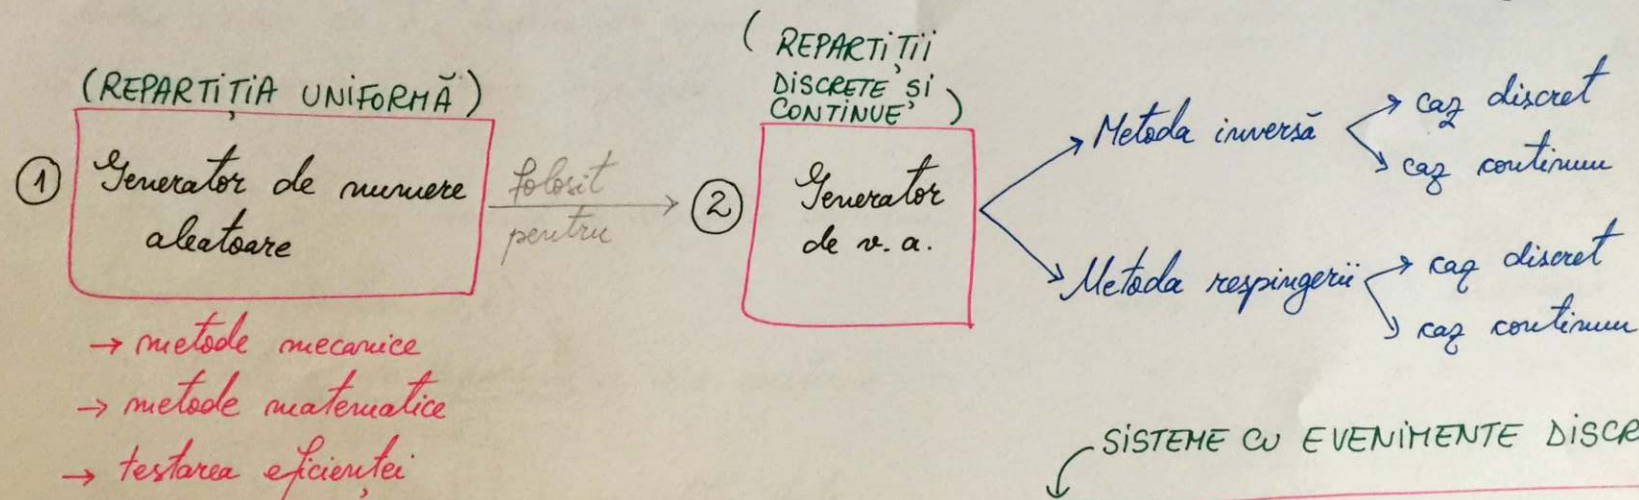 (REPARTIȚIA UNIFORMĂ)
① Generator de numere
aleatoare
→ metode mecanice
→ metode matematice
→ testarea eficienței
folosit
pentru
(REPARTIȚII
DISCRETE ȘI
CONTINUE)
② Generator
de v. a.
Metoda inversă
caz discret
caz continuu
Metoda respingerii
caz discret
caz continuu
SISTEME CU EVENIMENTE DISCR